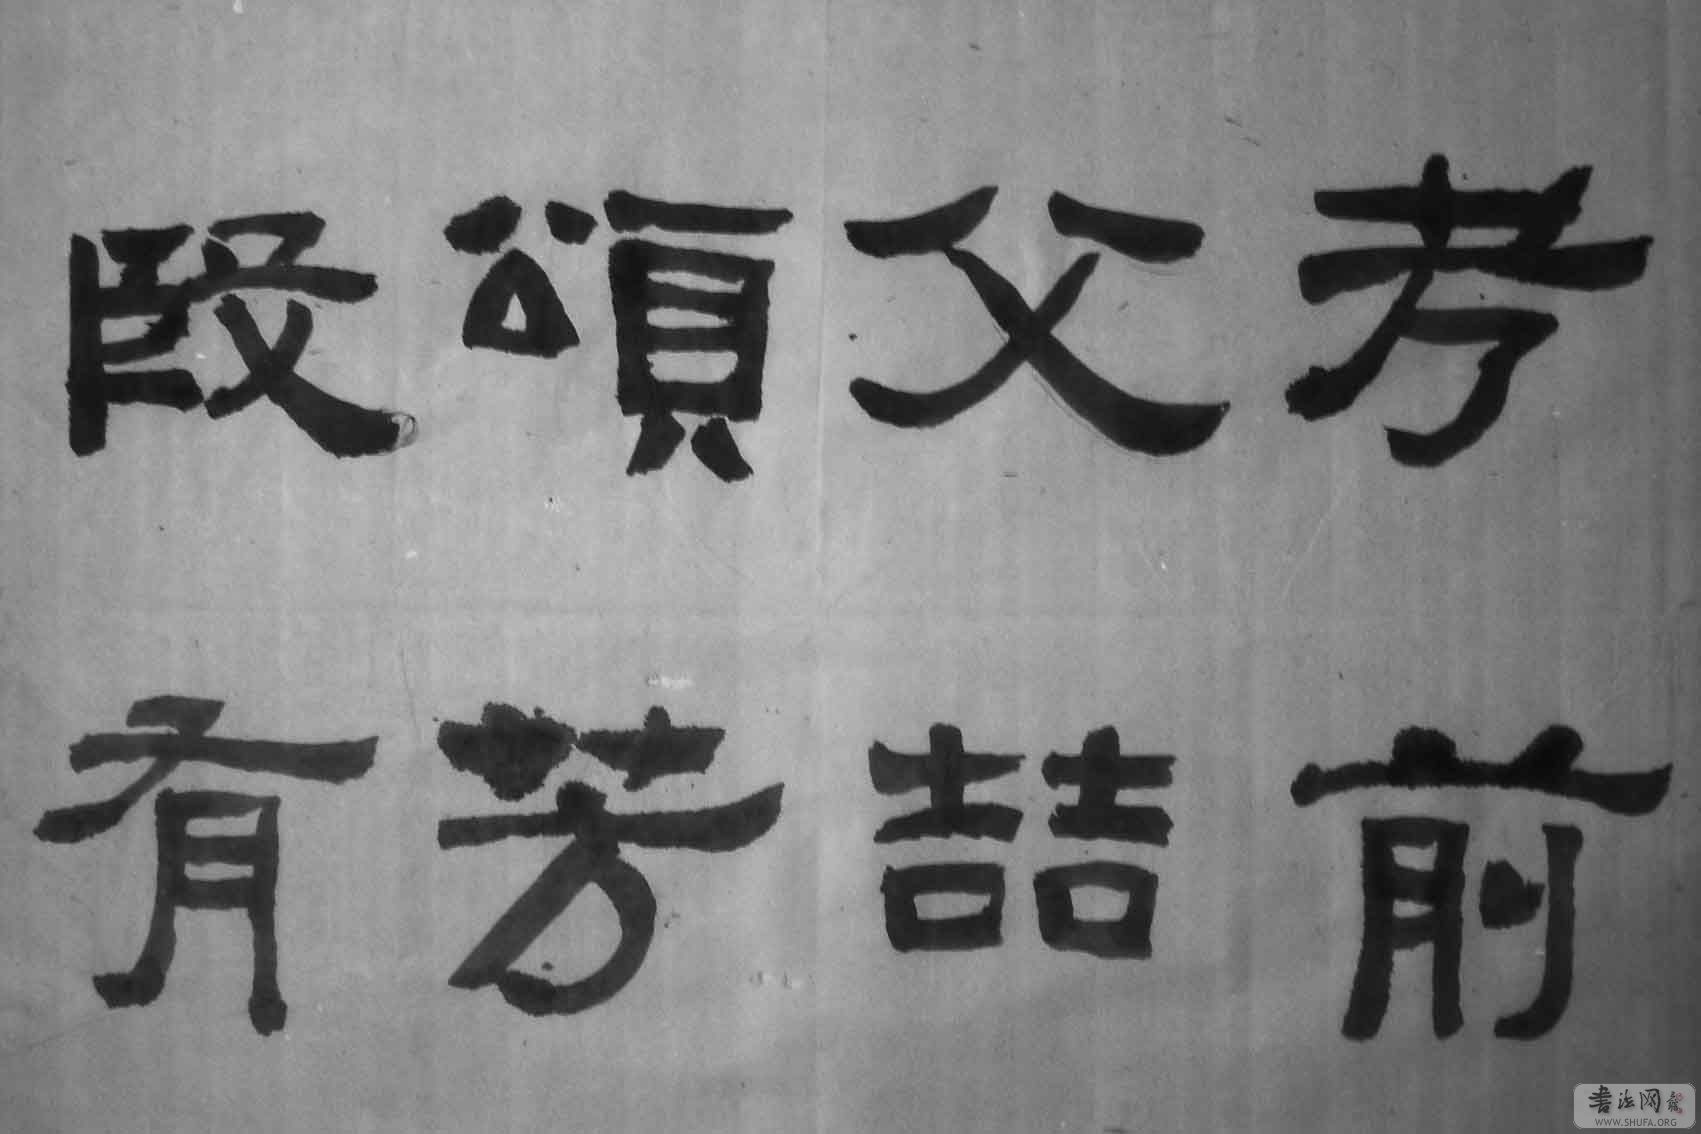 考父頌殷
前喆芳有
書法网
WWW.SHUFA.ORG